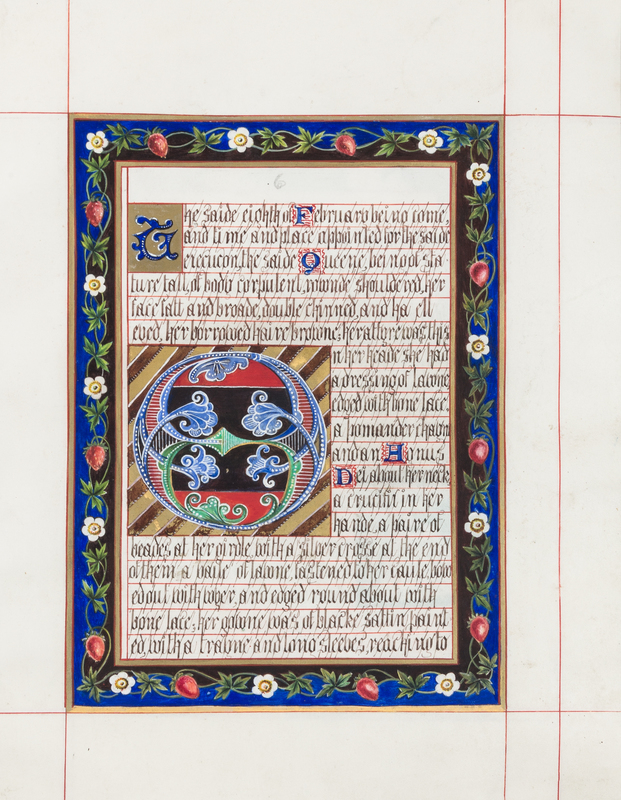 6
The saide eighth of February being come,
and time and place appointed for the saide
execucon, the saide Queene, being of sta
ture tall, of body corpulent, rounde shouldered, her
face fatt and broade, double chinned, and hasell
eyed, her borrowed haire browne; her attyre was this
On her heade she had
a dressing of lawne,
edged with bone lace,
a Pomander chayn
and an Agnus
Dei about her neck
a crucifix in her
hande, a paire of
beades at her girdle, with a silver crosse at the end
of them a vaile of lawne, fastened to her caule bow
ed out with wyer, and edged round about with
bone lace, her gowne was of blacke sattin paint
ed, with a trayne and long sleeves, reaching to